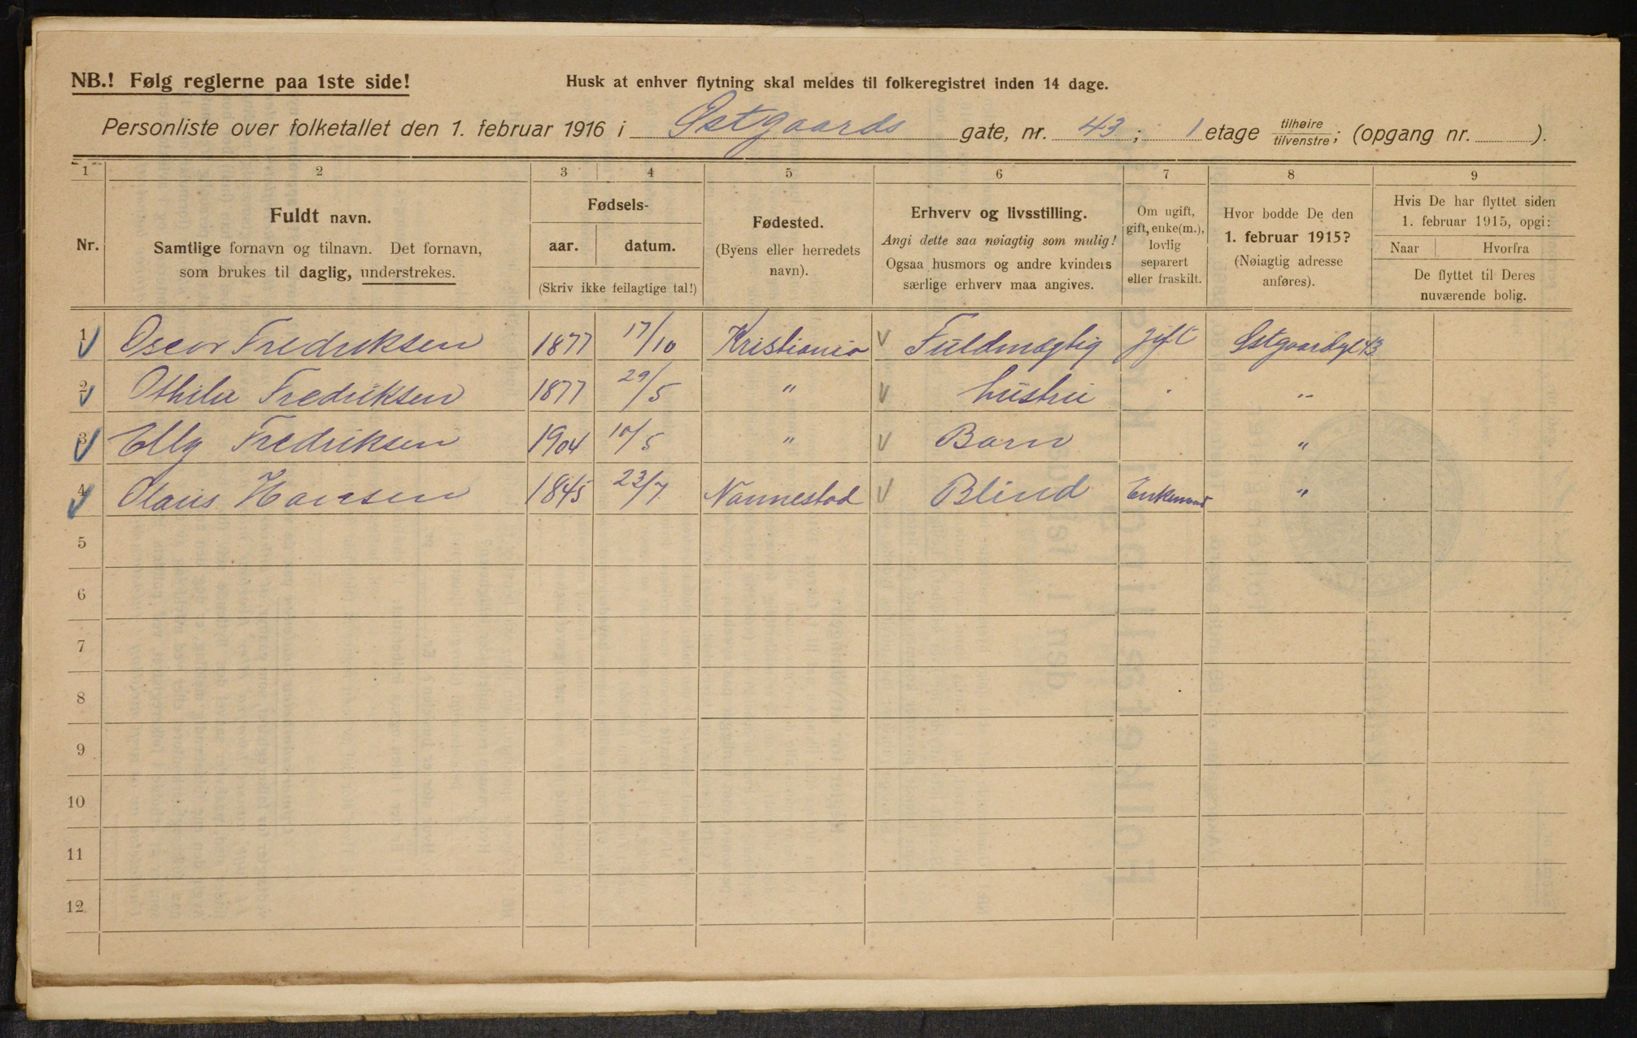 NB.! Følg reglerne paa 1ste side!
Husk at enhver flytning skal meldes til folkeregistret inden 14 dage.
Personliste over folketallet den 1. februar 1916 i Østgaards gate, nr. 43; 1 etage tilhøire/tilvenstre; (opgang nr. ).
1 2 3 4 5 6 7 8 9
Nr.
Fuldt navn.
Samtlige fornavn og tilnavn. Det fornavn,
som brukes til daglig, understrekes.
Fødsels-
aar. datum.
(Skriv ikke feilagtige tal!)
Fødested.
(Byens eller herredets
navn).
Erhverv og livsstilling.
Angi dette saa nøiagtig som mulig!
Ogsaa husmors og andre kvinders
særlige erhverv maa angives.
Om ugift,
gift, enke(m.),
lovlig
separert
eller fraskilt.
Hvor bodde De den
1. februar 1915?
(Nøiagtig adresse
anføres).
Hvis De har flyttet siden
1. februar 1915, opgi:
Naar Hvorfra
De flyttet til Deres
nuværende bolig.
1 Oscar Fredriksen 1877 17/10 Kristiania Fuldmægtig gift Østgaardsgt 43
2 Othilie Fredriksen 1877 29/5 " hustru "
3 Elly Fredriksen 1904 10/5 " Barn "
4 Olaus Hansen 1845 23/7 Nannestad Blind Enkemand "
5
6
7
8
9
10
11
12